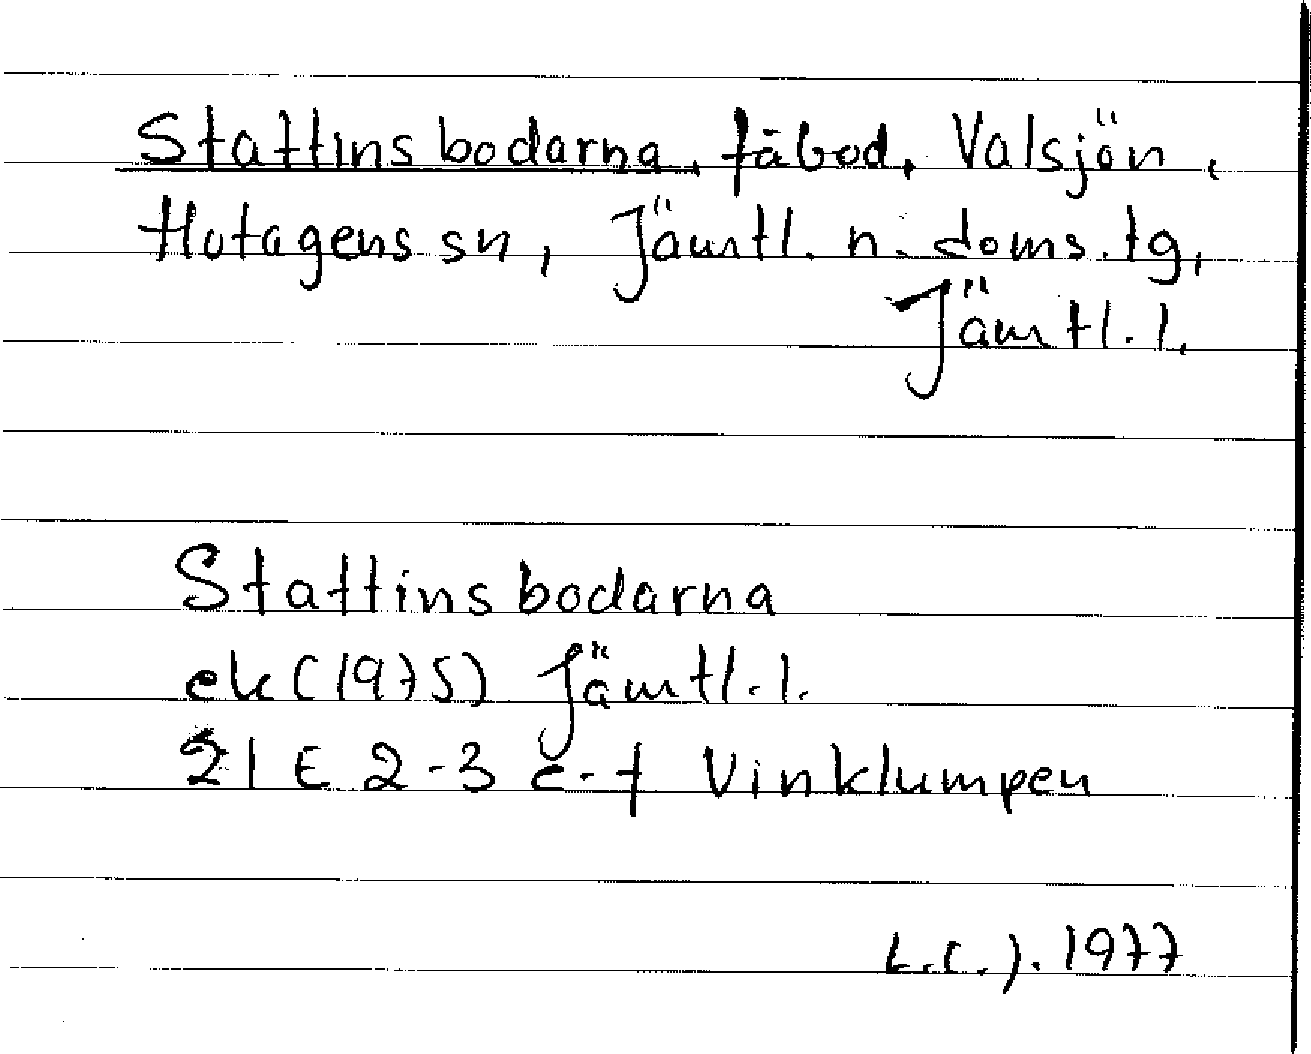 Stattinsbodarna, fäbod, Valsjön,
Hotagens sn, Jämtl. n. doms. tg,
Jämtl. l.
Stattinsbodarna
ek (1975) Jämtl. l.
21 E 2-3 e-f Vinklumpen
L.C.J. 1977